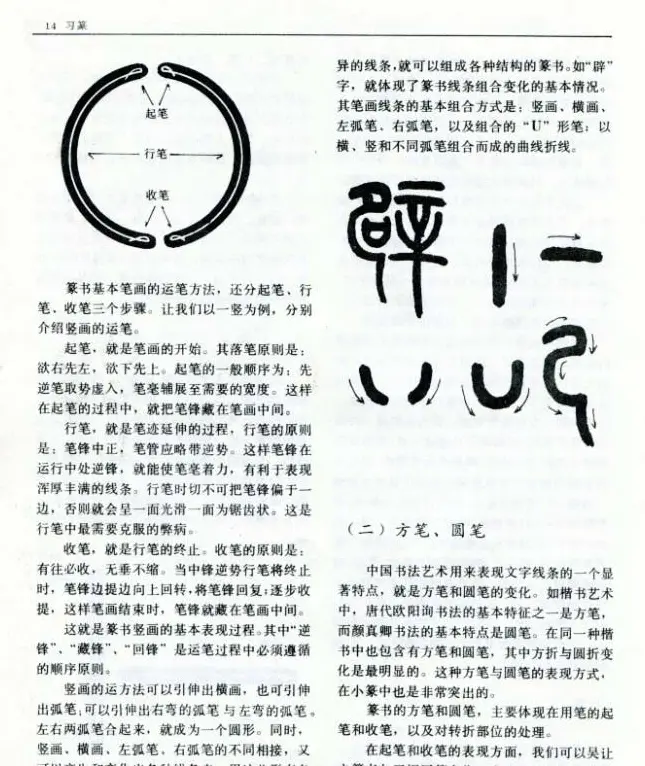 14 习篆
起笔
行笔
收笔
篆书基本笔画的运笔方法，还分起笔、行
笔、收笔三个步骤。让我们以一竖为例，分别
介绍竖画的运笔。
起笔，就是笔画的开始。其落笔原则是：
欲右先左，欲下先上。起笔的一般顺序为：先
逆笔取势虚入，笔毫辅展至需要的宽度。这样
在起笔的过程中，就把笔锋藏在笔画中间。
行笔，就是笔迹延伸的过程，行笔的原则
是：笔锋中正，笔管应略带逆势。这样笔锋在
运行中处逆锋，就能使笔毫着力，有利于表现
浑厚丰满的线条。行笔时切不可把笔锋偏于一
边，否则就会呈一面光滑一面为锯齿状。这是
行笔中最需要克服的弊病。
收笔，就是行笔的终止。收笔的原则是：
有往必收，无垂不缩。当中锋逆势行笔将终止
时，笔锋边提边向上回转，将笔锋回复；逐步收
提，这样笔画结束时，笔锋就藏在笔画中间。
这就是篆书竖画的基本表现过程。其中“逆
锋”、“藏锋”、“回锋”是运笔过程中必须遵循
的顺序原则。
竖画的运方法可以引伸出横画，也可引伸
出弧笔；可以引伸出右弯的弧笔与左弯的弧笔。
左右两弧笔合起来，就成为一个圆形。同时，
竖画、横画、左弧笔、右弧笔的不同相接，又
异的线条，就可以组成各种结构的篆书。如“辟”
字，就体现了篆书线条组合变化的基本情况。
其笔画线条的基本组合方式是：竖画、横画、
左弧笔、右弧笔，以及组合的“U”形笔；以
横、竖和不同弧笔组合而成的曲线折线。
辟
（二）方笔、圆笔
中国书法艺术用来表现文字线条的一个显
著特点，就是方笔和圆笔的变化。如楷书艺术
中，唐代欧阳询书法的基本特征之一是方笔，
而颜真卿书法的基本特点是圆笔。在同一种楷
书中也包含有方笔和圆笔，其中方折与圆折变
化是最明显的。这种方笔与圆笔的表现方式，
在小篆中也是非常突出的。
篆书的方笔和圆笔，主要体现在用笔的起
笔和收笔，以及对转折部位的处理。
在起笔和收笔的表现方面，我们可以吴让